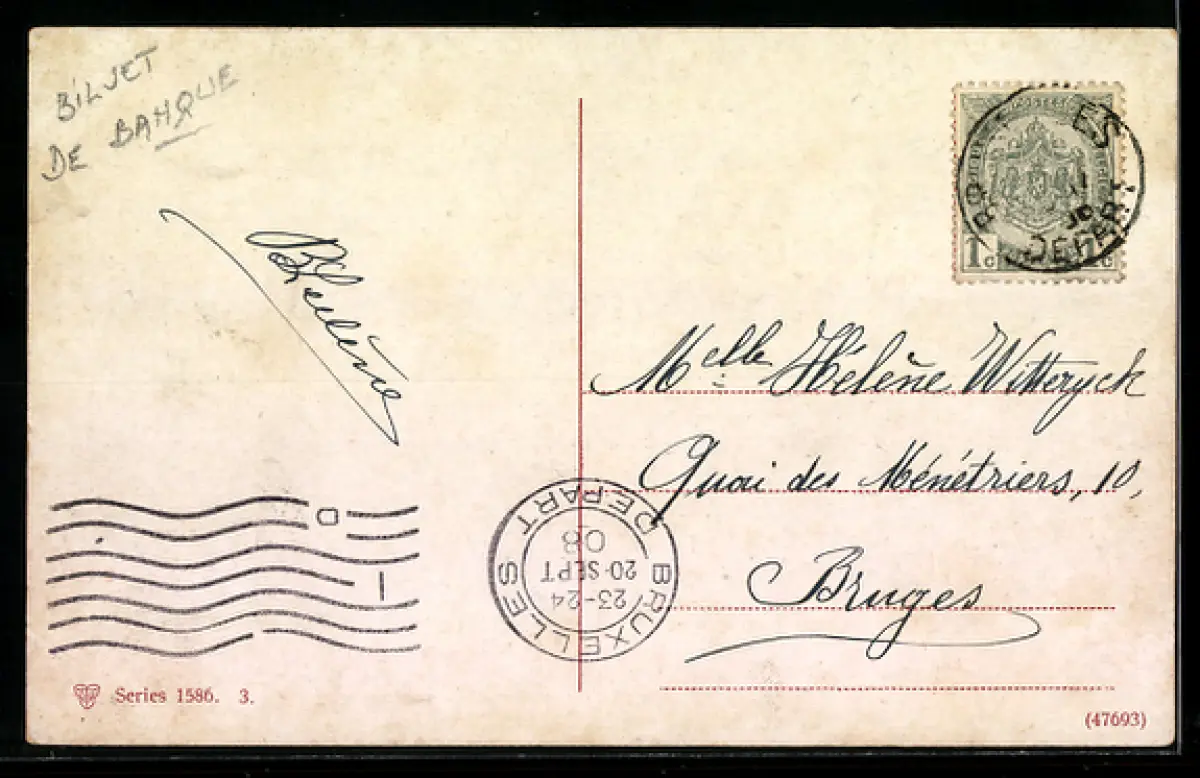 BILJET
DE BANQUE
Melle Hélène Witteryck
Quai des Ménétriers, 10,
Bruges
1c 1c
DEPART
BRUXELLES
DEPART
23-24
20-SEPT
08
Series 1586. 3.
(47693)